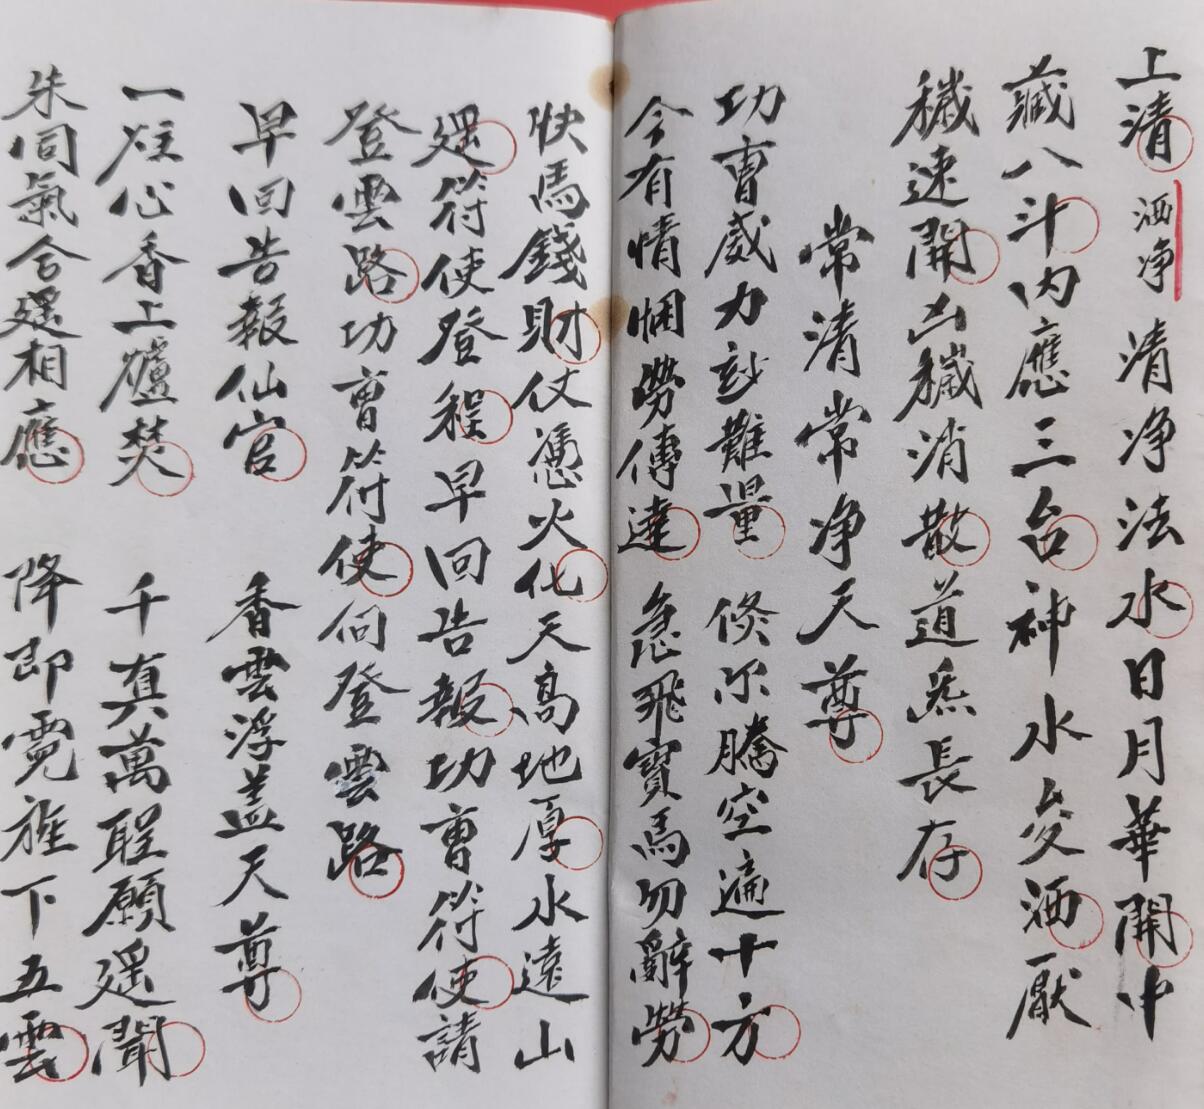 上清洒净清净法水日月華開中
藏八斗内應三台神水炁洒厭
穢速開凶穢消散道炁長存
常清常净天尊
功曹威力玅難量倏尔騰空遍十方
今有情悃勞傳達急飛寶馬勿辭勞
快馬錢財仗憑火化天高地厚水遠山
遥符使登程早回告報功曹符使請
登雲路功曹符使伺登雲路
早回告報仙官香雲浮盖天尊
一炷心香上爐焚千真萬聖願遥聞
朱同氣合遥相應降即霓旌下五雲